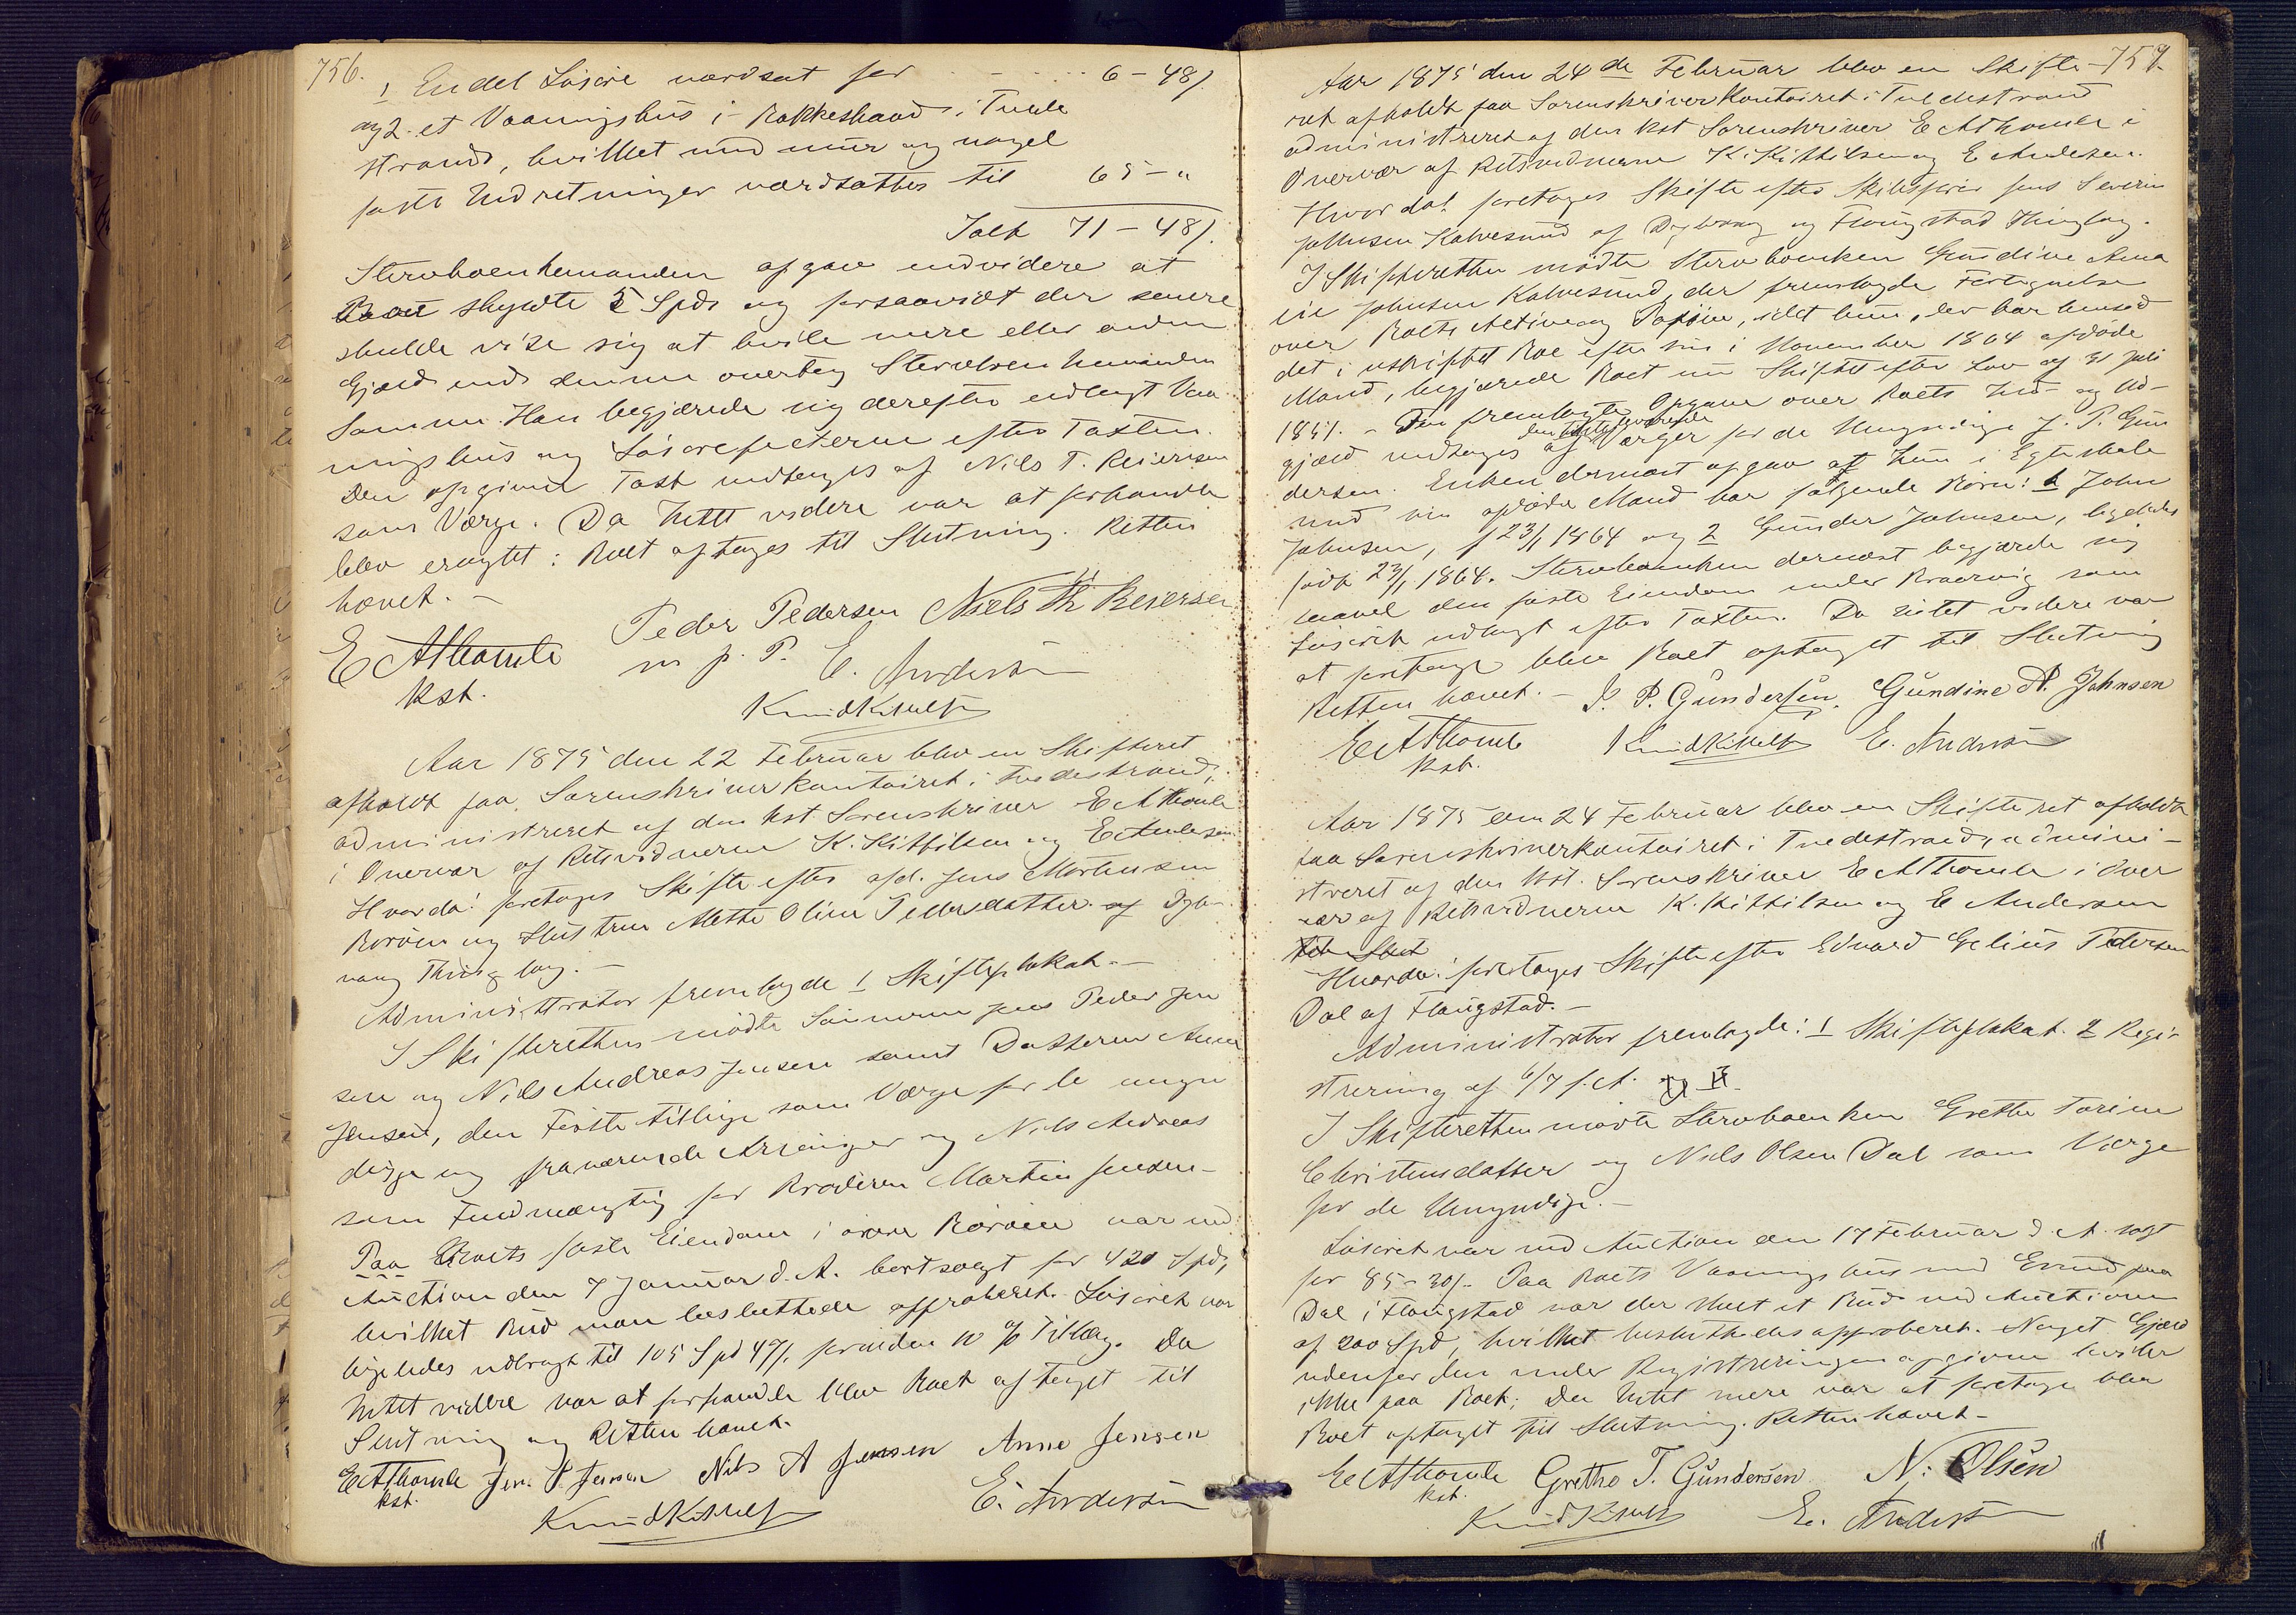 756.
1 Endel Løsøre værdsat for - - - - 6 - 48 ƒ.
og 2. et Vaaningshus i Bakkeskaad i Tvede
strand, hvilket med muur og nagel
faste Indretninger værdsattes til 65 - "
Ialt 71 - 48 ƒ.
Stervboenkemanden opgav endvidere at
Boet skyldte 5 Spd og forsaavidt der senere
skulde vise sig at hvile mere eller anden
Gjæld end denne overtog Stervboenkemanden
Samme. Han begjærede sig derefter udlagt Vaa
ningshus og Løsøreseterne efter Taxten.
Den opgivne Taxt modtoges af Niels T. Reiersen
som Værge. Da Intet videre var at forhandle
blev eragtet: Boet optages til Slutning. Retten
hævet. -
E A Thomle Peder Pedersen Niels Th Reiersen
kst. m p. P. E. Andersen
Knud Kittilsen
Aar 1875 den 22 Februar blev en Skifteret
afholdt paa Sorenskriverkontoiret i Tvedestrand,
administreret af den kst Sorenskriver E A Thomle
i Overvær af Retsvidnerne K. Kittilsen og E Andersen
Hvorda: foretoges Skifte efter afd. Jens Mortensen
Borøen og Hustru Mette Oline Pedersdatter af Dyb-
vaag Thinglag. -
Administrator fremlagde 1 Skifteplakat. -
I Skifteretten mødte Sønnerne Jens Peder Jen
sen og Nils Andreas Jensen samt Datteren Anne
Jensen, den Første tillige som Værge for de umyn
dige og fraværende Arvinger og Nils Andreas
som Fuldmægtig for Broderen Martin Jensen -
Paa Boets faste Eiendom i øvre Borøen var ved
Auction den 7 Januar d. A. bortsolgt for 420 Spd,
hvilket Bud man besluttede approberet. Løsøret var
ligeledes udbragt til 105 Spd 47 ƒ. foruden 10 % Tillæg. Da
Intet videre var at forhandle blev Boet optaget til
Slutning og Retten hævet.
E A Thomle Jen. P. Jensen Nils A Jensen Anne Jensen
kst. E. Andersen
Knud Kittilsen
757.
Aar 1875 den 24de Februar blev en Skifte-
ret afholdt paa Sorenskriverkontoiret i Tvedestrand
administreret af den kst Sorenskriver E A Thomle i
Overvær af Retsvidnerne K. Kittilsen og E Andersen.
Hvorda! foretoges Skifte efter Skibsfører Jens Severin
Johnsen Kalvesund af Dybvaag og Flangstad Thinglag.
I Skifteretten mødte Stervboenken Gundine Ama
lie Johnsen Kalvesund, der fremlagde Fortegnelse
over Boets Activa og Passiva, idet hun, der har hensid
det i uskiftet Boe efter sin i November 1864 afdøde
Mand, begjærede Boet nu Skiftet efter Lov af 31 Juli
1851. - Den fremlagte Opgave over Boets Ind- og Ud-
den tilstedeværende
gjæld modtoges af Værger for de Umyndige J. P. Gun
dersen. Enken dernæst opgav at hun i Egteskab
med sin afdøde Mand har følgende Børn: 1 John
Johnsen, f 23/1 1864 og 2 Gunder Johnsen, ligeledes
født 23/1 1864. Stervboenken dernæst begjærede sig
saavel den faste Eiendom under Braavig som
Løsøret udlagt efter Taxten. Da Intet videre var
at foretage blev Boet optaget til Slutning
Retten hævet. - J. P. Gundersen. Gundine A. Johnsen
E A Thomle Knud Kittilsen E. Andersen
kst.
Aar 1875 den 24 Februar blev en Skifteret afholdt
paa Sorenskriverkontoiret i Tvedestrand, admini-
streret af den kst. Sorenskriver E A Thomle i Over
vær af Retsvidnerne K. Kittilsen og E Andersen
Hvorda: foretoges Skifte efter Edvard Gelius Pedersen
Dal af Flangstad. -
Administrator fremlagde: 1 Skifteplakat. 2 Regi-
strering af 6/7 f. A.
I Skifteretten mødte Stervboenken Grethe Torine
Christensdatter og Niels Olsen Dal som Værge
for de Umyndige. -
Løsøret var ved Auction den 17 Februar d. A. solgt
for 85 - 30 ƒ. Paa Boets Vaaningshus med Grund paa
Dal i Flangstad var der skeet et Bud ved Auctionen
af 200 Spd, hvilket besluttedes approberet. Noget Gjæld
udenfor den under Registreringen opgivne hviler
ikke paa Boet; Da Intet mere var at foretage blev
Boet optaget til Slutning. Retten hævet -
E A Thomle Grethe T. Gundersen N. Olsen
kst.
Knud Kittilsen E. Andersen